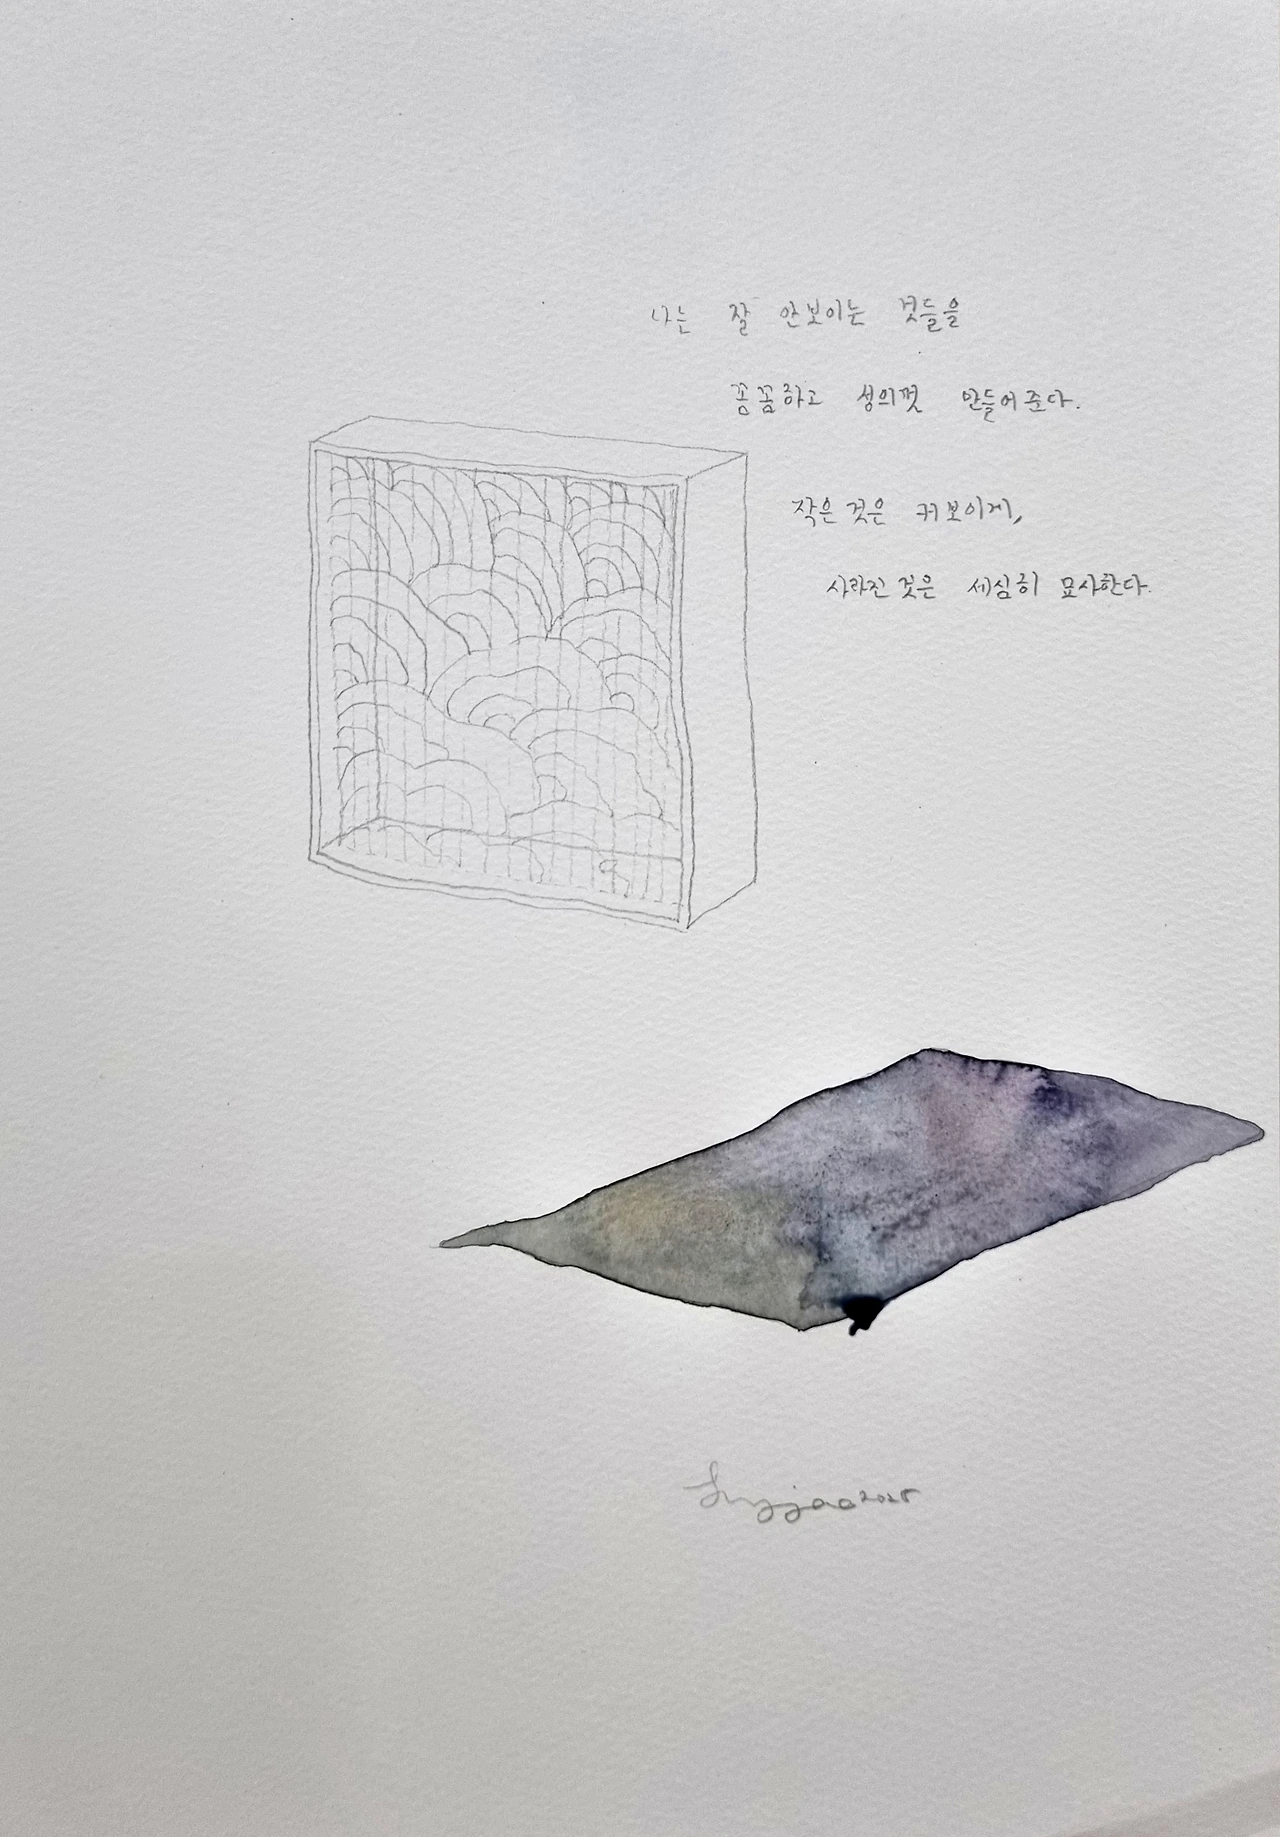 나는 잘 안보이는 것들을
꼼꼼하고 성의껏 만들어준다.
작은 것은 커보이게,
사라진 것은 세심히 묘사한다.